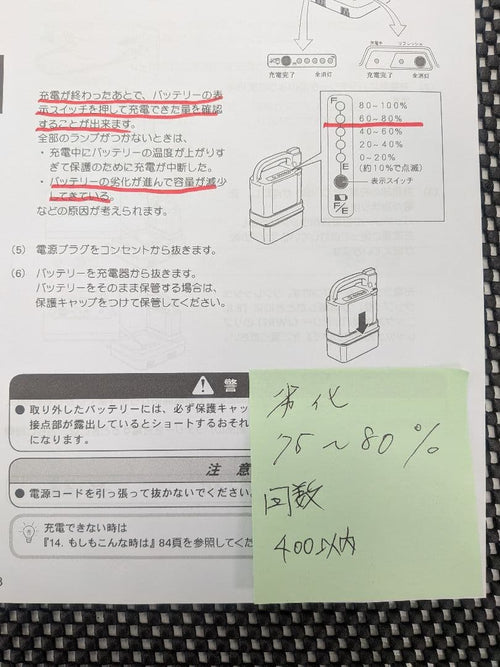 充電中 リフレッシュ
充電完了 全消灯 充電完了 全消灯
充電が終わったあとで、バッテリーの表
示スイッチを押して充電できた量を確認
することが出来ます。
全部のランプがつかないときは、
・充電中にバッテリーの温度が上がりす
ぎて保護のために充電が中断した。
・バッテリーの劣化が進んで容量が減少
してきている。
などの原因が考えられます。
F
80~100%
60~80%
40~60%
20~40%
0~20%
E
(約10%で点滅)
表示スイッチ
F/E
(5) 電源プラグをコンセントから抜きます。
(6) バッテリーを充電器から抜きます。
バッテリーをそのまま保管する場合は、
保護キャップをつけて保管してください。
警
● 取り外したバッテリーには、必ず保護キャッ
接点部が露出しているとショートするおそれ
になります。
注 意
● 電源コードを引っ張って抜かないでください。
充電できない時は
『14. もしもこんな時は』84頁を参照してくだ
劣化
75~80%
回数
400以内